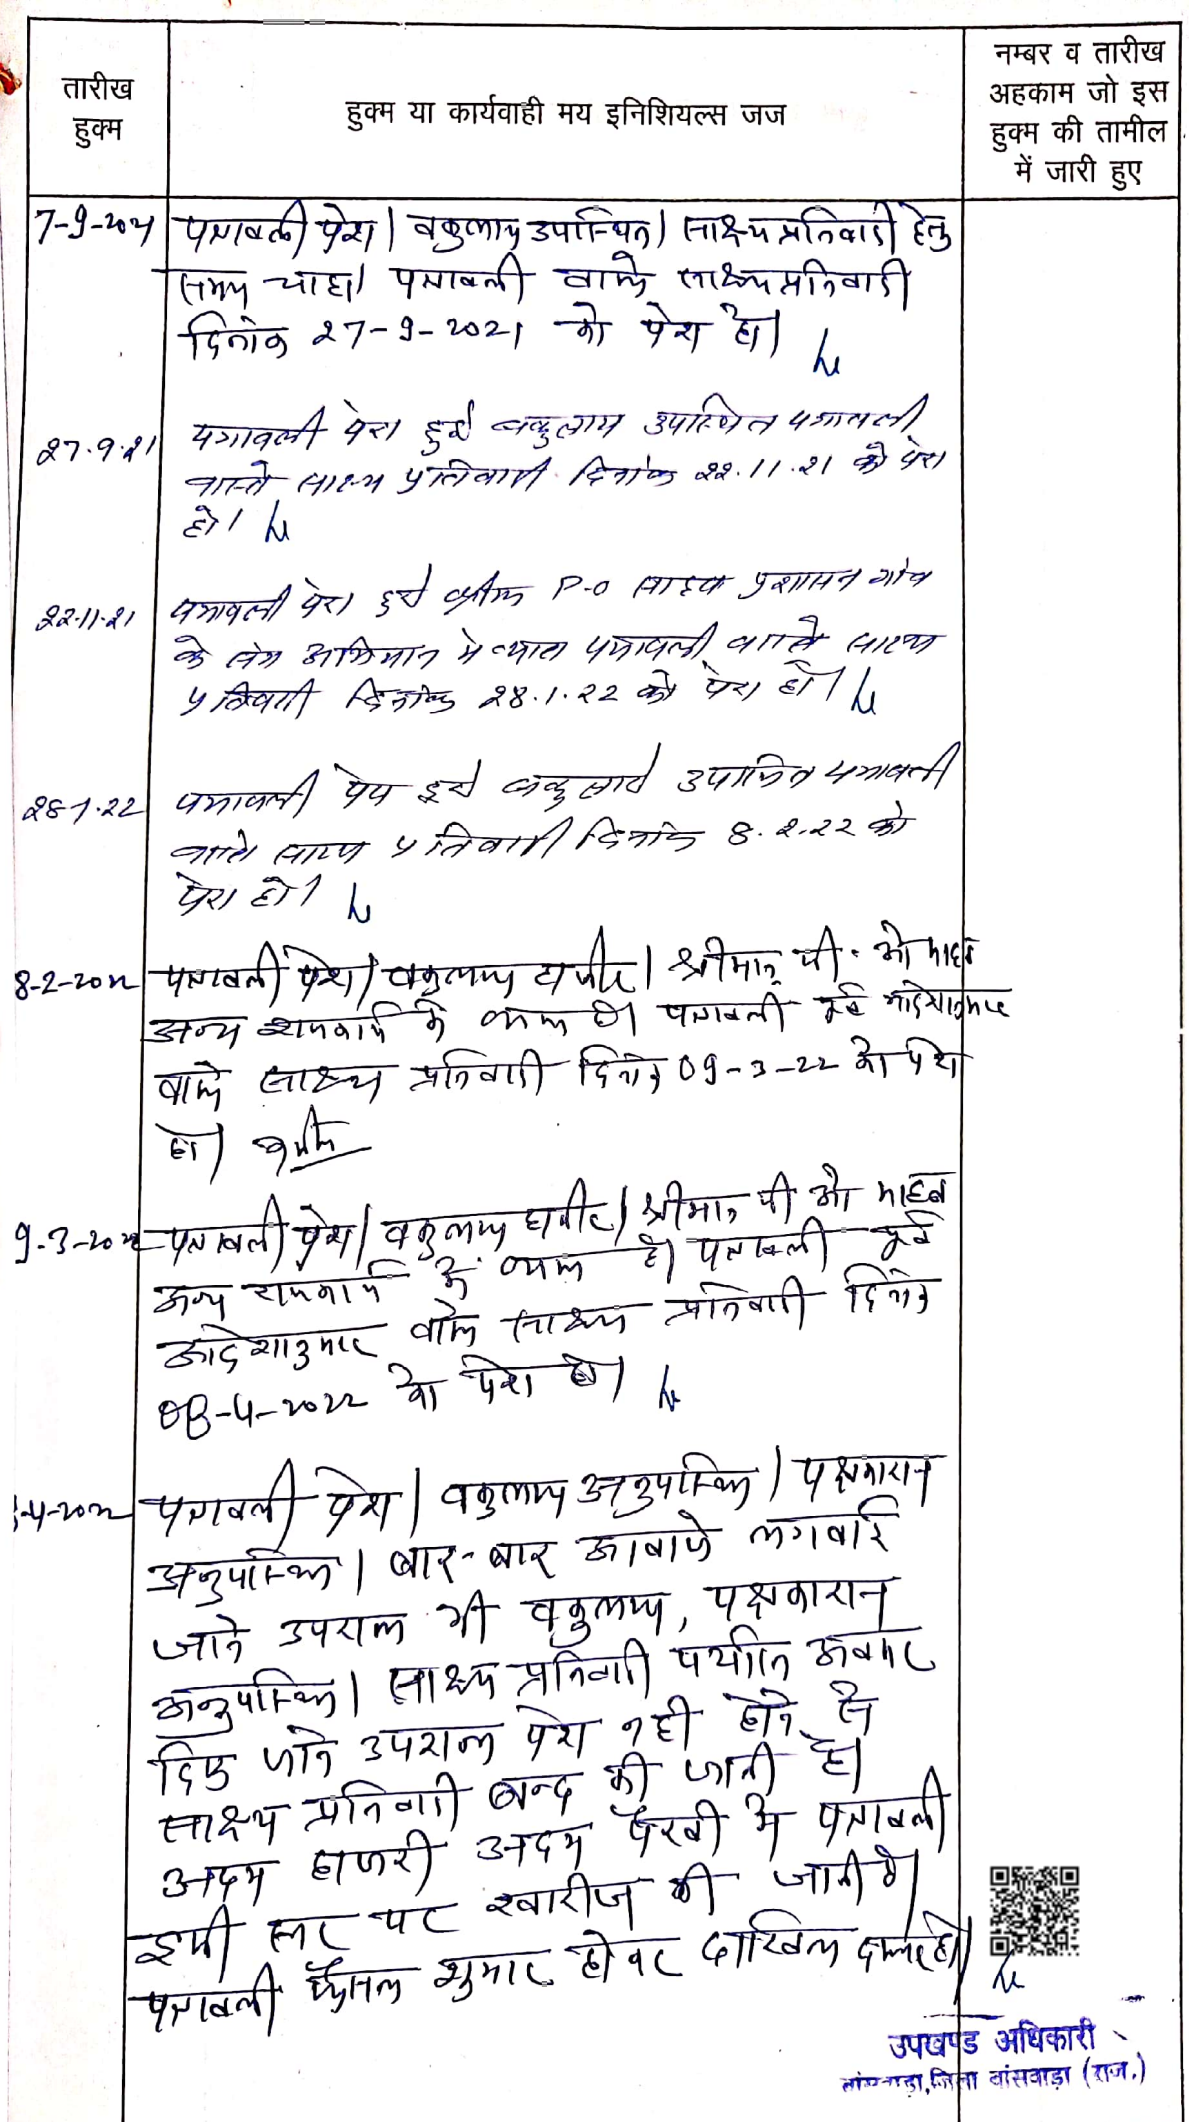 तारीख
हुक्म
हुक्म या कार्यवाही मय इनिशियल्स जज
नम्बर व तारीख
अहकाम जो इस
हुक्म की तामील
में जारी हुए
7-9-2021 पत्रावली पेश। वकुलाय उपस्थित। साक्ष्य प्रतिवादी हेतु
समय चाहा। पत्रावली वास्ते साक्ष्य प्रतिवादी
दिनांक 27-9-2021 को पेश हो।
27.9.21 पत्रावली पेश हुई वकुलाय उपस्थित पत्रावली
वास्ते साक्ष्य प्रतिवादी दिनांक 22.11.21 को पेश
हो।
22.11.21 पत्रावली पेश हुई P.O साहब प्रशासन गांव
के संग अभियान में व्यस्त पत्रावली वास्ते साक्ष्य
प्रतिवादी दिनांक 28.1.22 को पेश हो।
28.1.22 पत्रावली पेश हुई वकुलाय उपस्थित पत्रावली
वास्ते साक्ष्य प्रतिवादी दिनांक 8.2.22 को
पेश हो।
8-2-2022 पत्रावली पेश। वकुलाय हाजीर। श्रीमान् पी. ओ साहब
अन्य राजकार्य में व्यस्त है। पत्रावली पूर्व आदेशानुसार
वास्ते साक्ष्य प्रतिवादी दिनांक 09-3-22 को पेश
हो।
9-3-2022 पत्रावली पेश। वकुलाय हाजीर। श्रीमान पी ओ साहब
अन्य राजकार्य में व्यस्त है। पत्रावली पूर्व
आदेशानुसार वास्ते साक्ष्य प्रतिवादी दिनांक
08-4-2022 को पेश हो।
-4-2022 पत्रावली पेश। वकुलाय अनुपस्थित। पक्षकारान
अनुपस्थित। बार-बार आवाजे लगवाये
जाने उपरान्त भी वकुलाय, पक्षकारान
अनुपस्थित। साक्ष्य प्रतिवादी पर्याप्त अवसर
दिए जाने उपरान्त पेश नही होने से
साक्ष्य प्रतिवादी बन्द की जाती है।
अदम हाजरी अदम पैरवी में पत्रावली
इसी स्तर पर खारीज की जाती है।
पत्रावली फैसल शुमार होकर दाखिल दफ्तर हो।
उपखण्ड अधिकारी
जिला बांसवाड़ा (राज.)